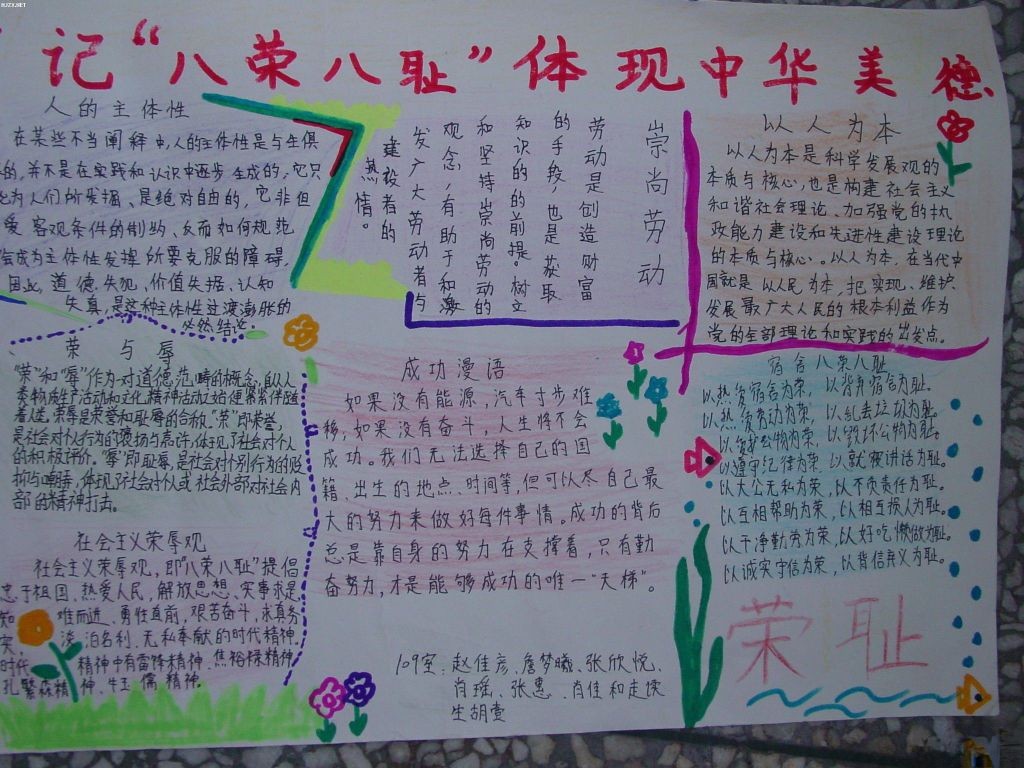 RJZX.NET
记“八荣八耻”体现中华美德
人的主体性
在某些不当阐释中,人的主体性是与生俱
的,并不是在实践和认识中逐步生成的,它只
为人们所发掘、是绝对自由的,它非但
受客观条件的制约、反而如何规范
会成为主体性发挥所要克服的障碍,
因此,道德失范,价值失据、认知
失真,是这种主体性过渡膨胀的
必然结论。
荣与辱
“荣”和“辱”作为一对道德范畴的概念,自从人
类物质生产活动和文化精神活动之始便紧紧伴随
着人类。荣辱是荣誉和耻辱的合称。“荣”即荣誉,
是社会对个人行为的褒扬与嘉许,体现了社会对个人
的积极评价。“辱”即耻辱,是社会对个别行为的贬
折与嘲弄,体现了社会对个人或社会外部对社会内
部的精神打击。
社会主义荣辱观
社会主义荣辱观,即“八荣八耻”提倡
忠于祖国、热爱人民,解放思想、实事求是
知难而进、勇往直前,艰苦奋斗,求真务
实,淡泊名利、无私奉献的时代精神.
时代精神中有雷锋精神、焦裕禄精神
孔繁森精神、牛玉儒精神。
崇尚劳动
劳动是创造财富
的手段,也是获取
知识的的前提。树立
和坚持崇尚劳动的
观念,有助于和激
发广大劳动者与
建设者的
热情。
成功漫语
如果没有能源,汽车寸步难
移,如果没有奋斗,人生将不会
成功。我们无法选择自己的国
籍、出生的地点、时间等,但可以尽自己最
大的努力来做好每件事情。成功的背后
总是靠自身的努力在支撑着,只有勤
奋努力,才是能够成功的唯一“天梯”。
109室:赵佳彦、詹梦曦、张欣悦、
肖瑶、张惠、肖佳和走读
生胡萱
以人为本
以人为本是科学发展观的
本质与核心,也是构建社会主义
和谐社会理论、加强党的执
政能力建设和先进性建设理论
的本质与核心。以人为本,在当代中
国就是以人民为本,把实现、维护、
发展最广大人民的根本利益作为
党的全部理论和实践的出发点。
宿舍八荣八耻
以热爱宿舍为荣,以背弃宿舍为耻。
以热爱劳动为荣,以乱丢垃圾为耻。
以爱护公物为荣,以毁坏公物为耻。
以遵守纪律为荣,以就寝讲话为耻。
以大公无私为荣,以不负责任为耻。
以互相帮助为荣,以相互损人为耻。
以干净勤劳为荣,以好吃懒做为耻。
以诚实守信为荣,以背信弃义为耻。
荣耻